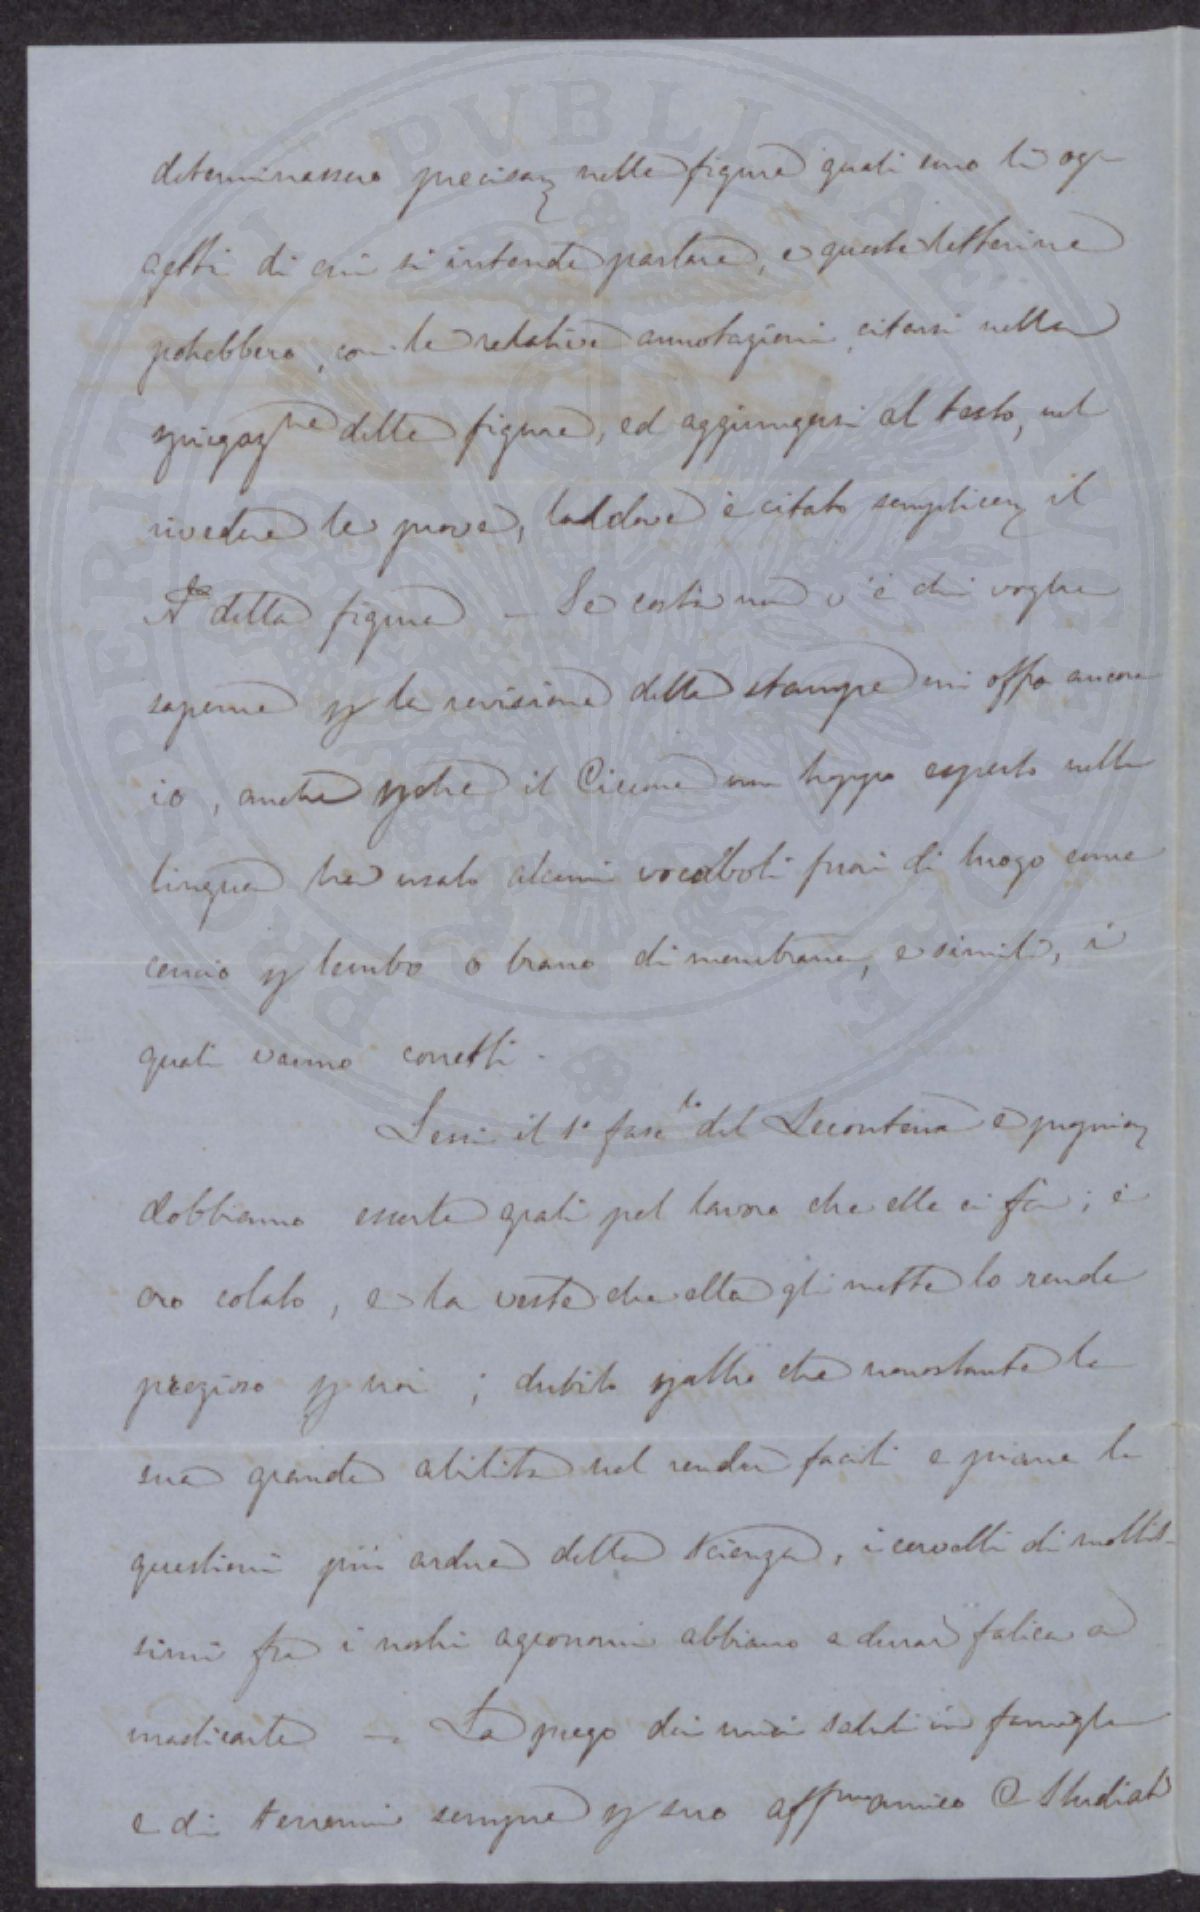 determinassero precisam nelle figure quali sono li og-
getti di cui si intende parlare, e queste letterine
potrebbero, con le relative annotazioni, citarsi nella
spiegazne delle figure, ed aggiungersi al testo, nel
rivedere le prove, laddove è citato semplicem il
No della figura — Se costà non v'è chi voglia
saperne p la revisione della stampa mi offro ancora
io, anche pche il Ciccone non troppo esperto nella
lingua ha usato alcuni vocaboli fuori di luogo come
cencio p lembo o brano di membrana, e simili, i
quali vanno corretti.
Lessi il 1º fasclo del e
dobbiamo esserle grati pel lavoro che ella ci fa; è
oro colato, e la veste che ella gli mette lo rende
prezioso p noi; dubito paltro che nonostante la
sua grande abilità nel render facili e piane le
questioni più ardue della scienza, i cervelli di moltis-
simi fra i nostri agronomi abbiano a durar fatica a
masticarle — La prego dei miei saluti in famiglia
e di tenermi sempre p suo affmo amico C Studiati
PROSPERITATI PVBLICAE AVGENDAE